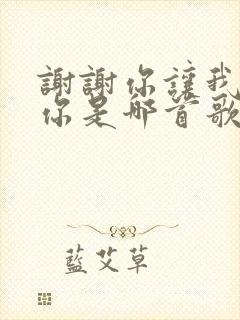 謝謝你讓我
你是哪首歌
藍艾草